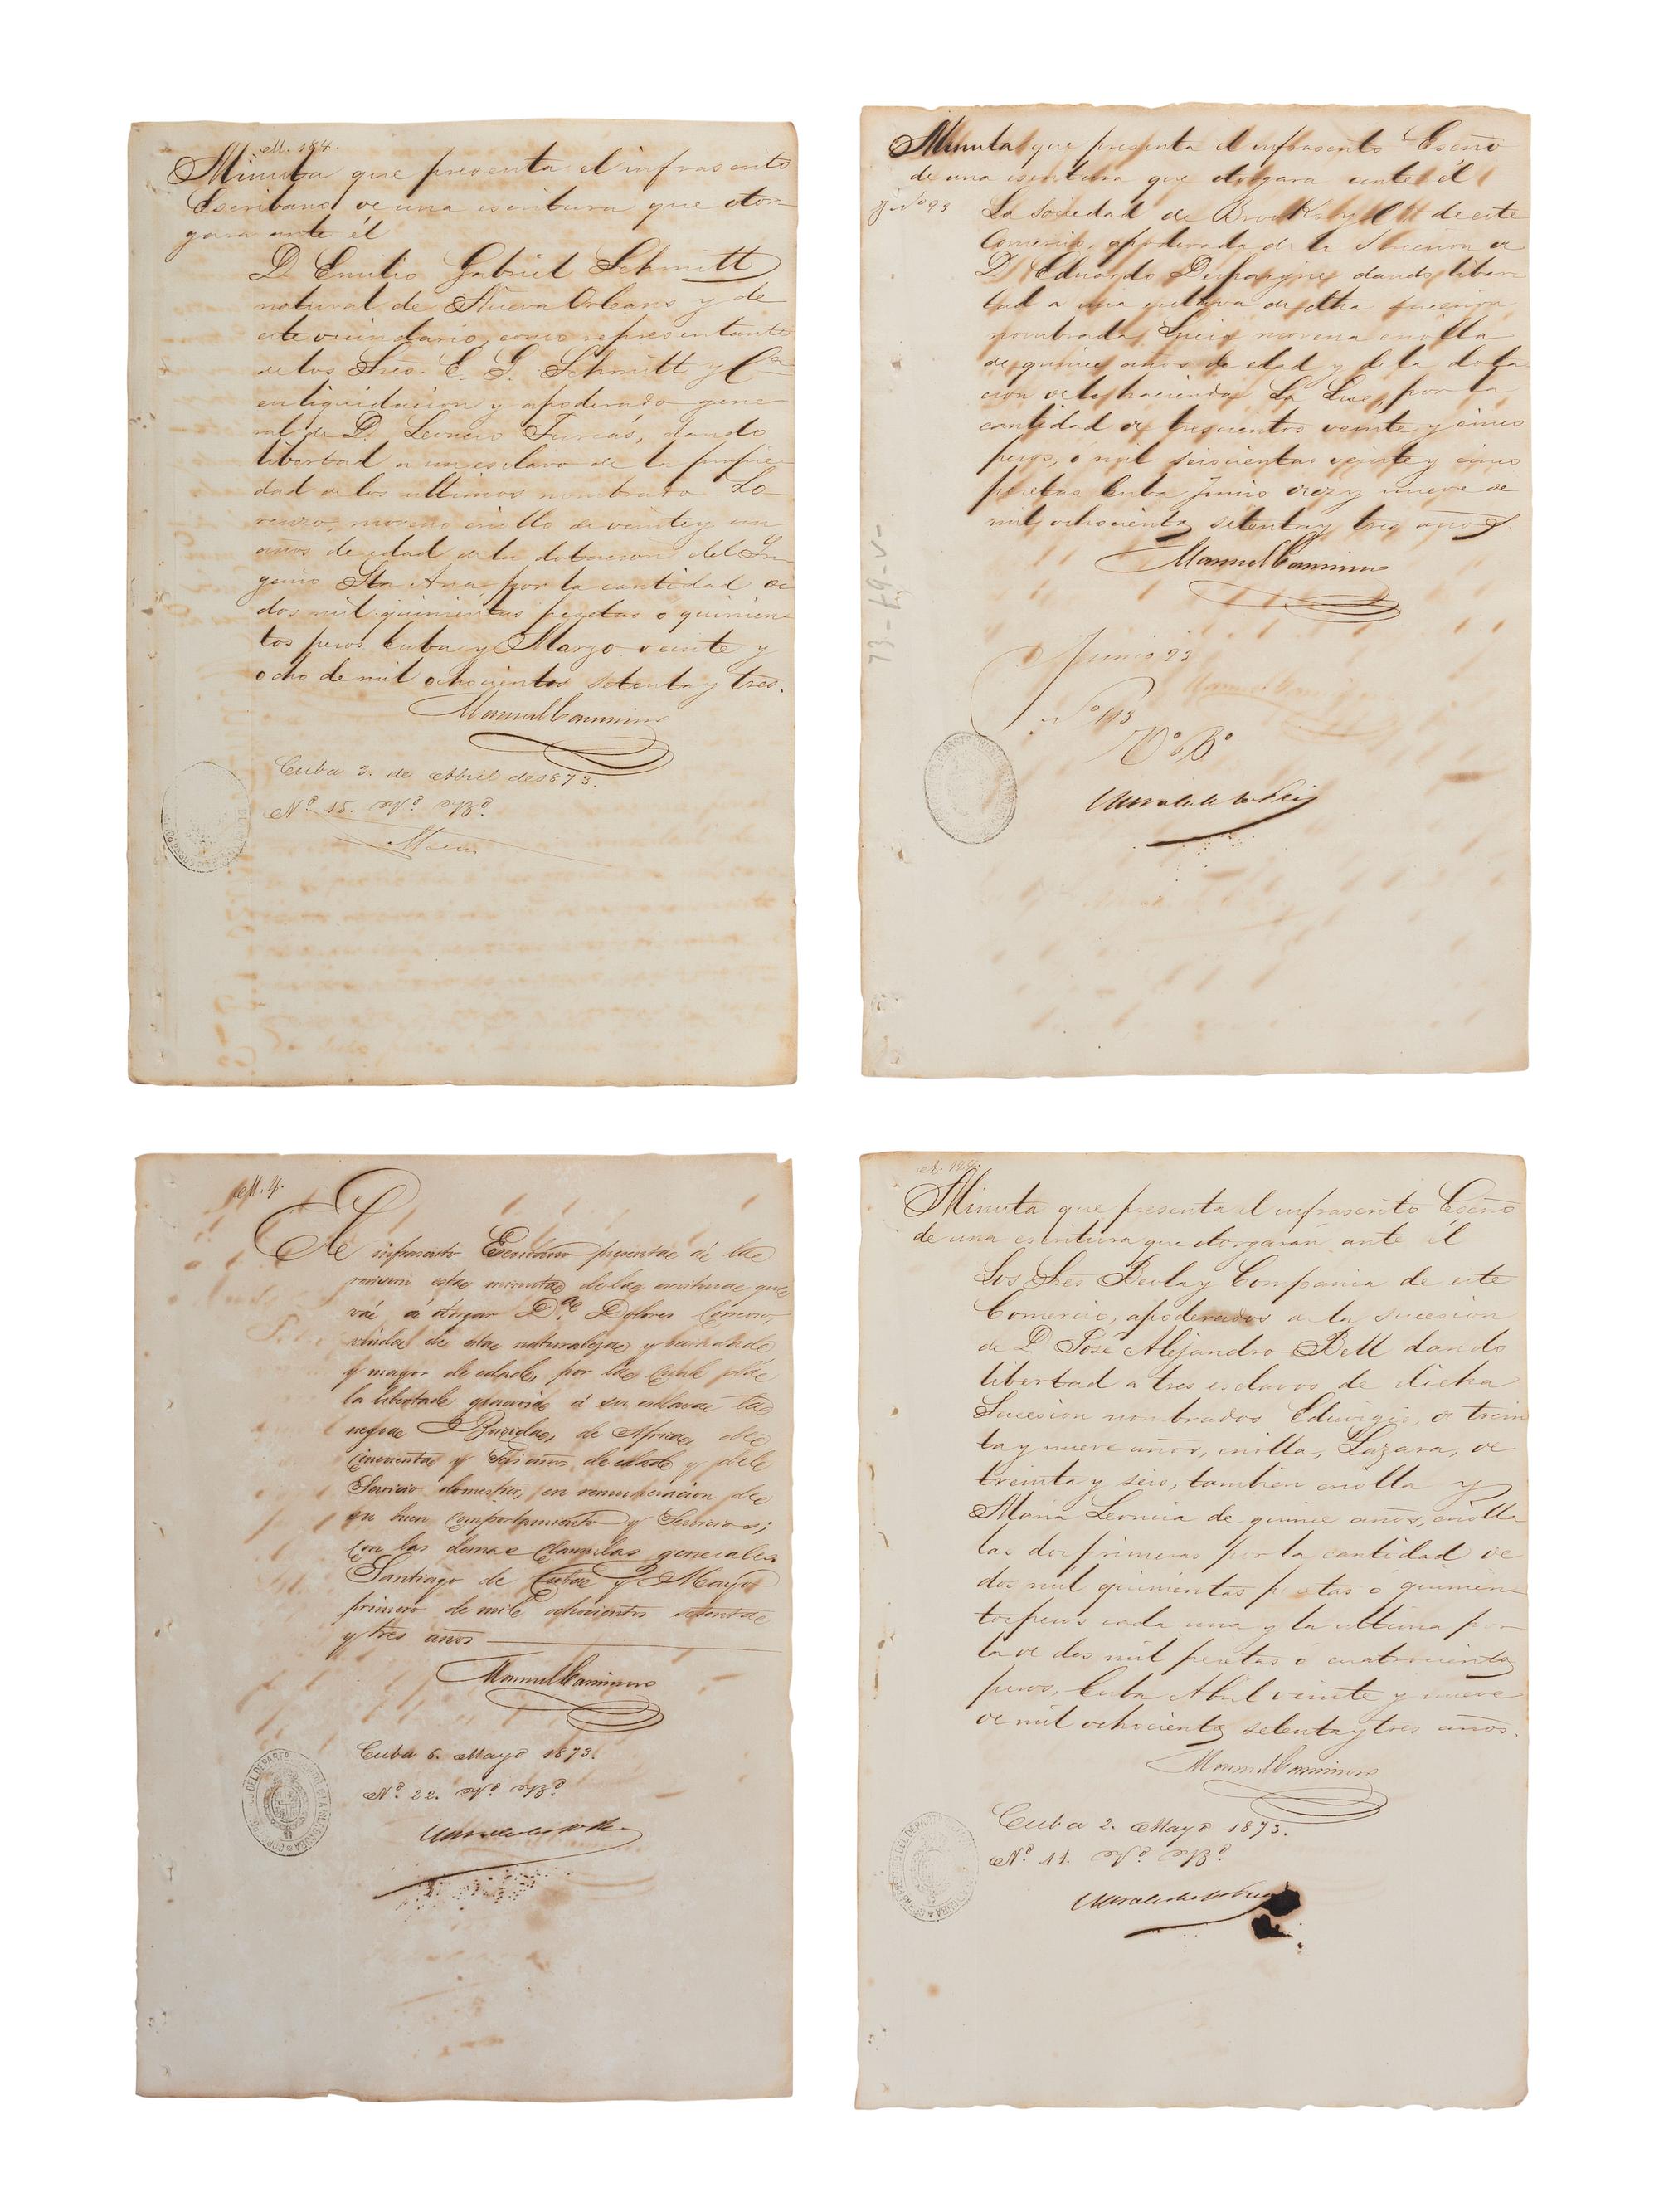 M. 184.
Minuta que presenta el infrascrito
Escribano de una escritura que otor-
gara ante él
D. Emilio Gabriel Schmitt
natural de Nueva Orleans y de
este vecindario, como representante
de los Sres. E. G. Schmitt y Cª
en liquidacion y apoderado gene
ral de D. Leoncio dando
libertad a un esclavo de la propie-
dad de los ultimos nombrado Lo-
renzo, moreno criollo de veinte y un
años de edad de la dotacion del In-
genio Sta Ana por la cantidad de
dos mil quinientas pesetas o quinien-
tos pesos Cuba y Marzo veinte y
ocho de mil ochocientos setenta y tres.
Manuel Caminero
Cuba 3. de Abril de 1873.
Nº 15. Vº Bº
Minuta que presenta el infrascrito Escño
de una escritura que otorgara ante él
La Sociedad de Brooks y Cª de este
Comercio, apoderada de la Sucesion de
D. Eduardo Despaigne dando liber-
tad a una esclava de dha sucesion
nombrada Lucia morena criolla
de quince años de edad y de la dota-
cion de la hacienda La Luz, por la
cantidad de trescientos veinte y cinco
pesos, ó mil seiscientas veinte y cinco
pesetas Cuba Junio diez y nueve de
mil ochocientos setenta y tres años.
Manuel Caminero
73-69-V-
Junio 23
Nº 113
Vº Bº
M. 4.
El infrascrito Escribano presenta á la
esta minuta de la escritura que
vá á otorgar Dª Dolores
viuda de esta naturaleza y vecindad
y mayor de edad, por la cual dá
la libertad graciosa á su esclava la
negra Brigida, de Africa, de
cincuenta y seis años de edad y del
Servicio domestico, en remuneracion de
su buen comportamiento y Servicios;
con las demas clausulas generales
Santiago de Cuba y Mayo
primero de mil ochocientos setenta
y tres años
Manuel Caminero
Cuba 6. Mayo 1873.
Nº 22. Vº Bº
M. 184.
Minuta que presenta el infrascrito Escño
de una escritura que otorgarán ante él
Los Sres Beola y Compania de este
Comercio, apoderados de la sucesion
de D. José Alejandro Bell dando
libertad a tres esclavos de dicha
Sucesion nombrados Eduvigis, de trein
ta y nueve años, criolla, Lazara, de
treinta y seis, tambien criolla y
Maria Leoncia de quince años, criolla
las dos primeras por la cantidad de
dos mil quinientas pesetas ó quinien-
tos pesos cada una y la ultima por
la de dos mil pesetas ó cuatrocientos
pesos, Cuba Abril veinte y nueve
de mil ochocientos setenta y tres años.
Manuel Caminero
Cuba 2. Mayo 1873.
Nº 11. Vº Bº